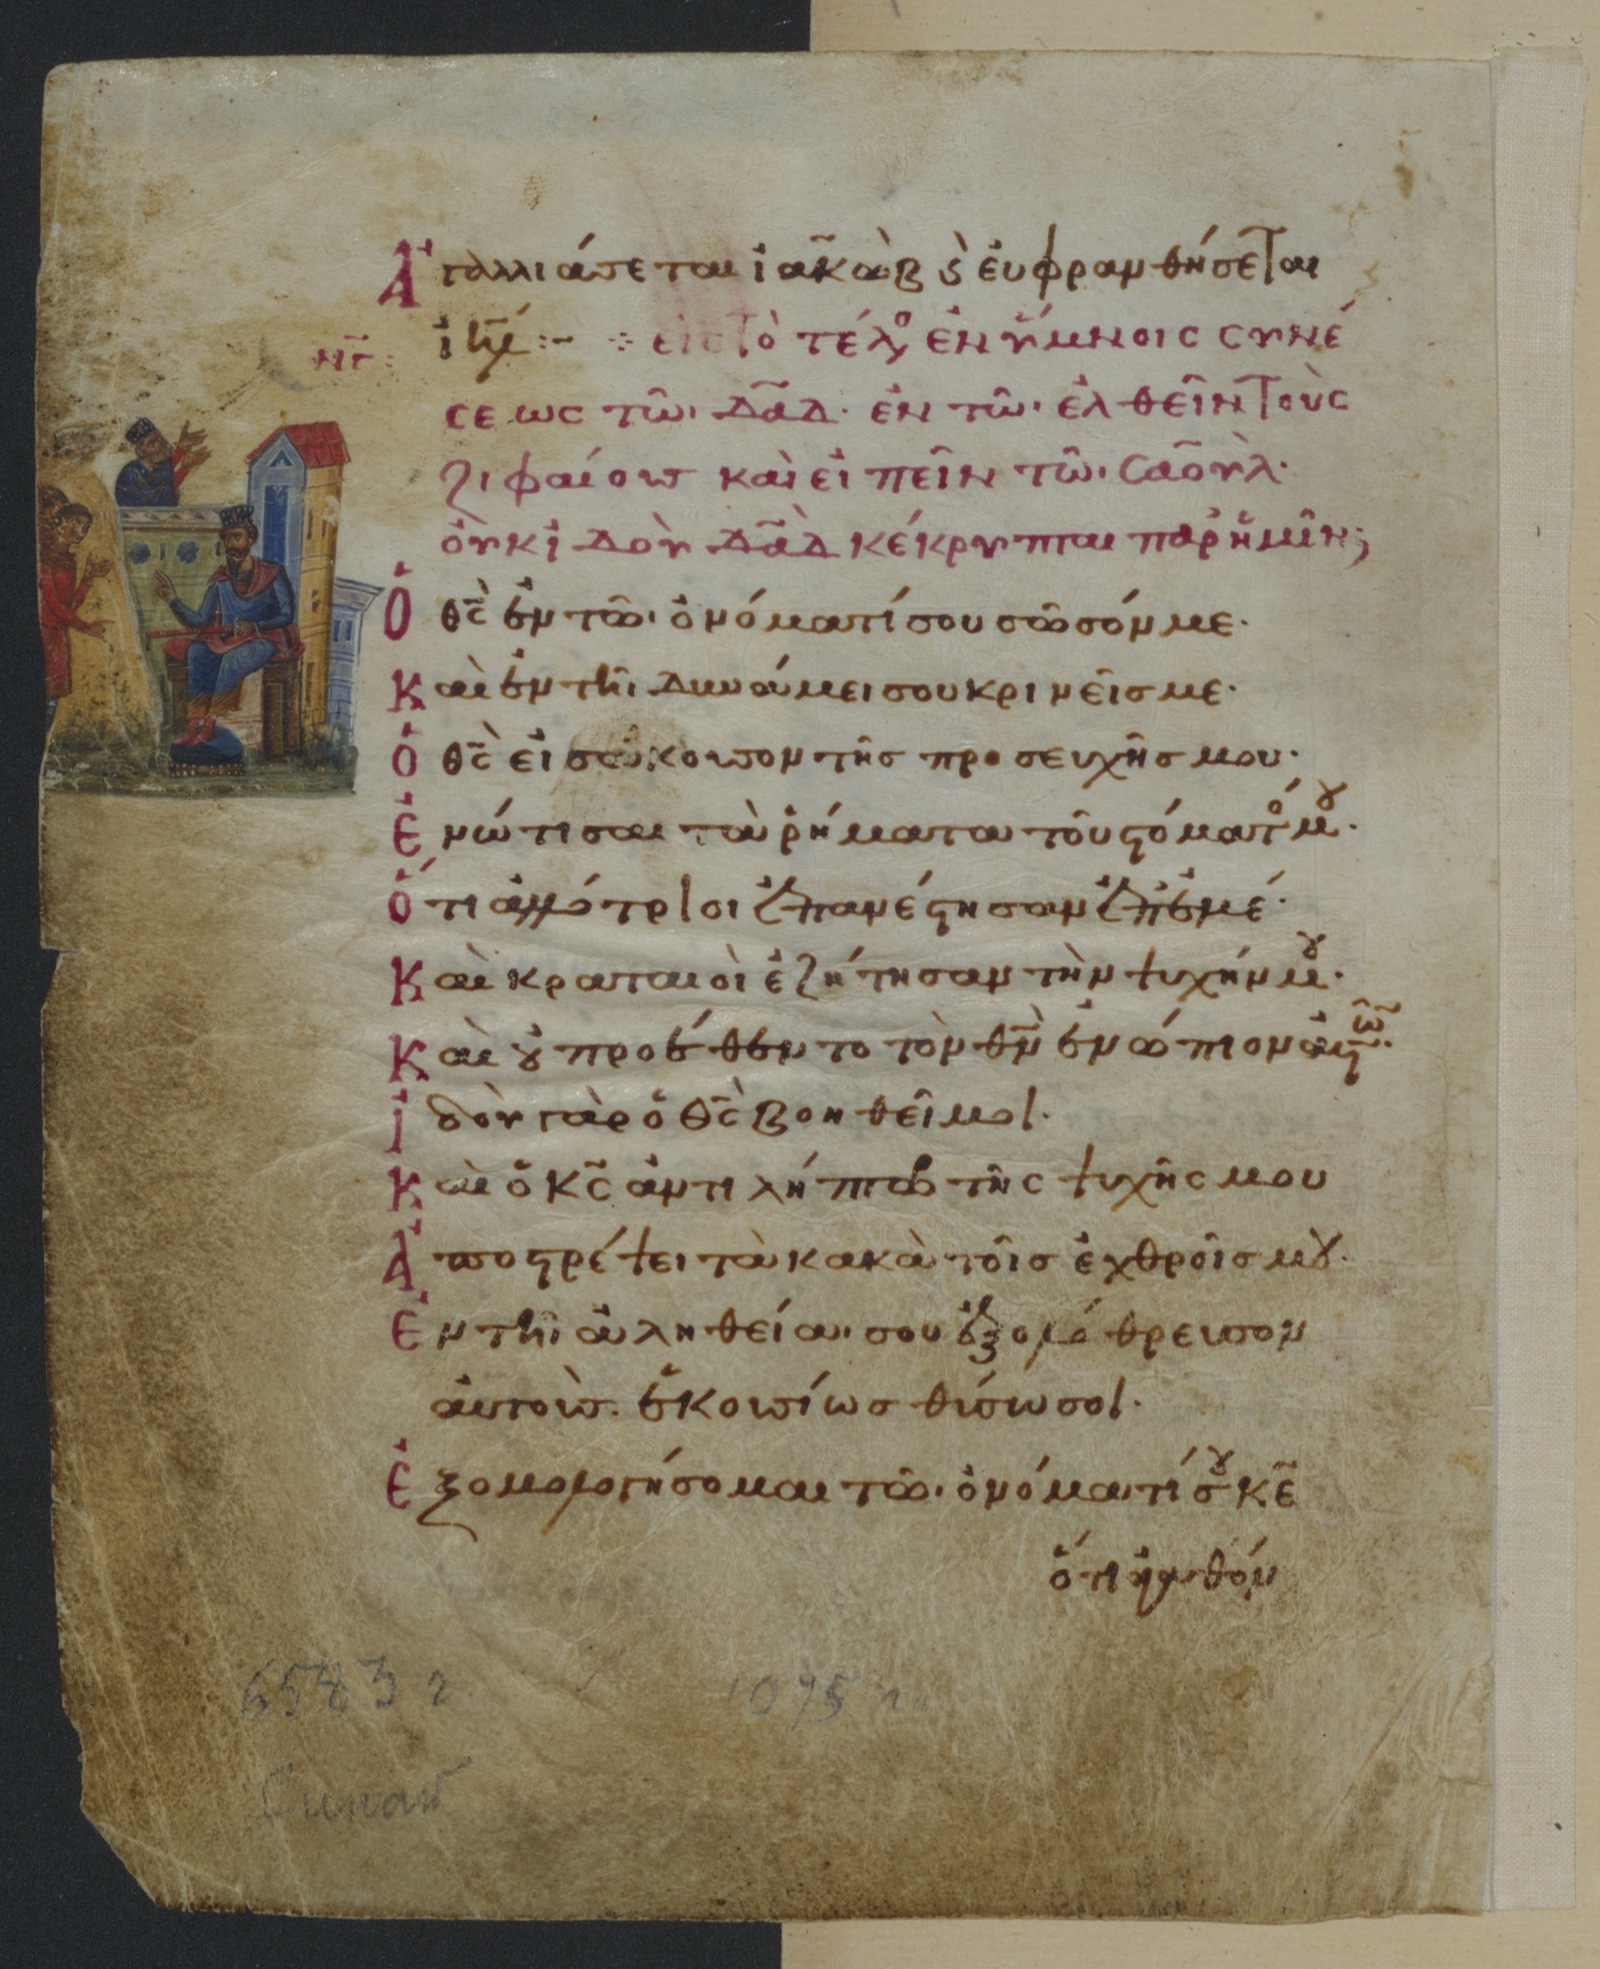 Ἀγαλλιάσεται ἰακὼβ ϗ εὐφρανθήσεται
ἰηλ́ :– ⁘ εἰς τὸ τέλο ἐν ὕμνοις συνέ
νγ̄:
σεως τῶι δᾱδ· ἐν τῶι ἐλθεῖν τοὺς
ζιφαίους καὶ εἰπεῖν τῶι Σαοὺλ·
οὐκ ἰδοὺ δᾱδ κέκρυπται παρ' ἡμῖν;
Ὁ θς̄ ἐν τῶι ὀνόματί σου σῶσόν με·
Καὶ ἐν τῆι δυνάμει σου κρινεῖς με·
Ὁ θς̄ εἰσάκουσον τῆς προσευχῆς μου·
Ἐνώτισαι τὰ ῥήματα τοῦ στόματο μου·
Ὅτι ἀλλότριοι ἐπανέστησαν ἐπ' ἐμέ·
Καὶ κραταιοὶ ἐζήτησαν τὴν ψυχήν μου·
Καὶ οὐ προέθεντο τὸν θν̄ ἐνώπιον αὐτῶν·
Ἰδοὺ γὰρ ὁ θς̄ βοηθεῖ μοι·
Καὶ ὁ κς̄ ἀντιλήπτωρ τῆς ψυχῆς μου
Ἀποστρέψει τὰ κακὰ τοῖς ἐχθροῖς μου·
Ἐν τῆι ἀληθείαι σου ἐξολόθρευσον
αὐτούς· ἑκουσίως θύσω σοι·
Ἐξομολογήσομαι τῶι ὀνόματί σου κε̄
ὅτι ἀγαθόν
65832 1075 г.
Синай